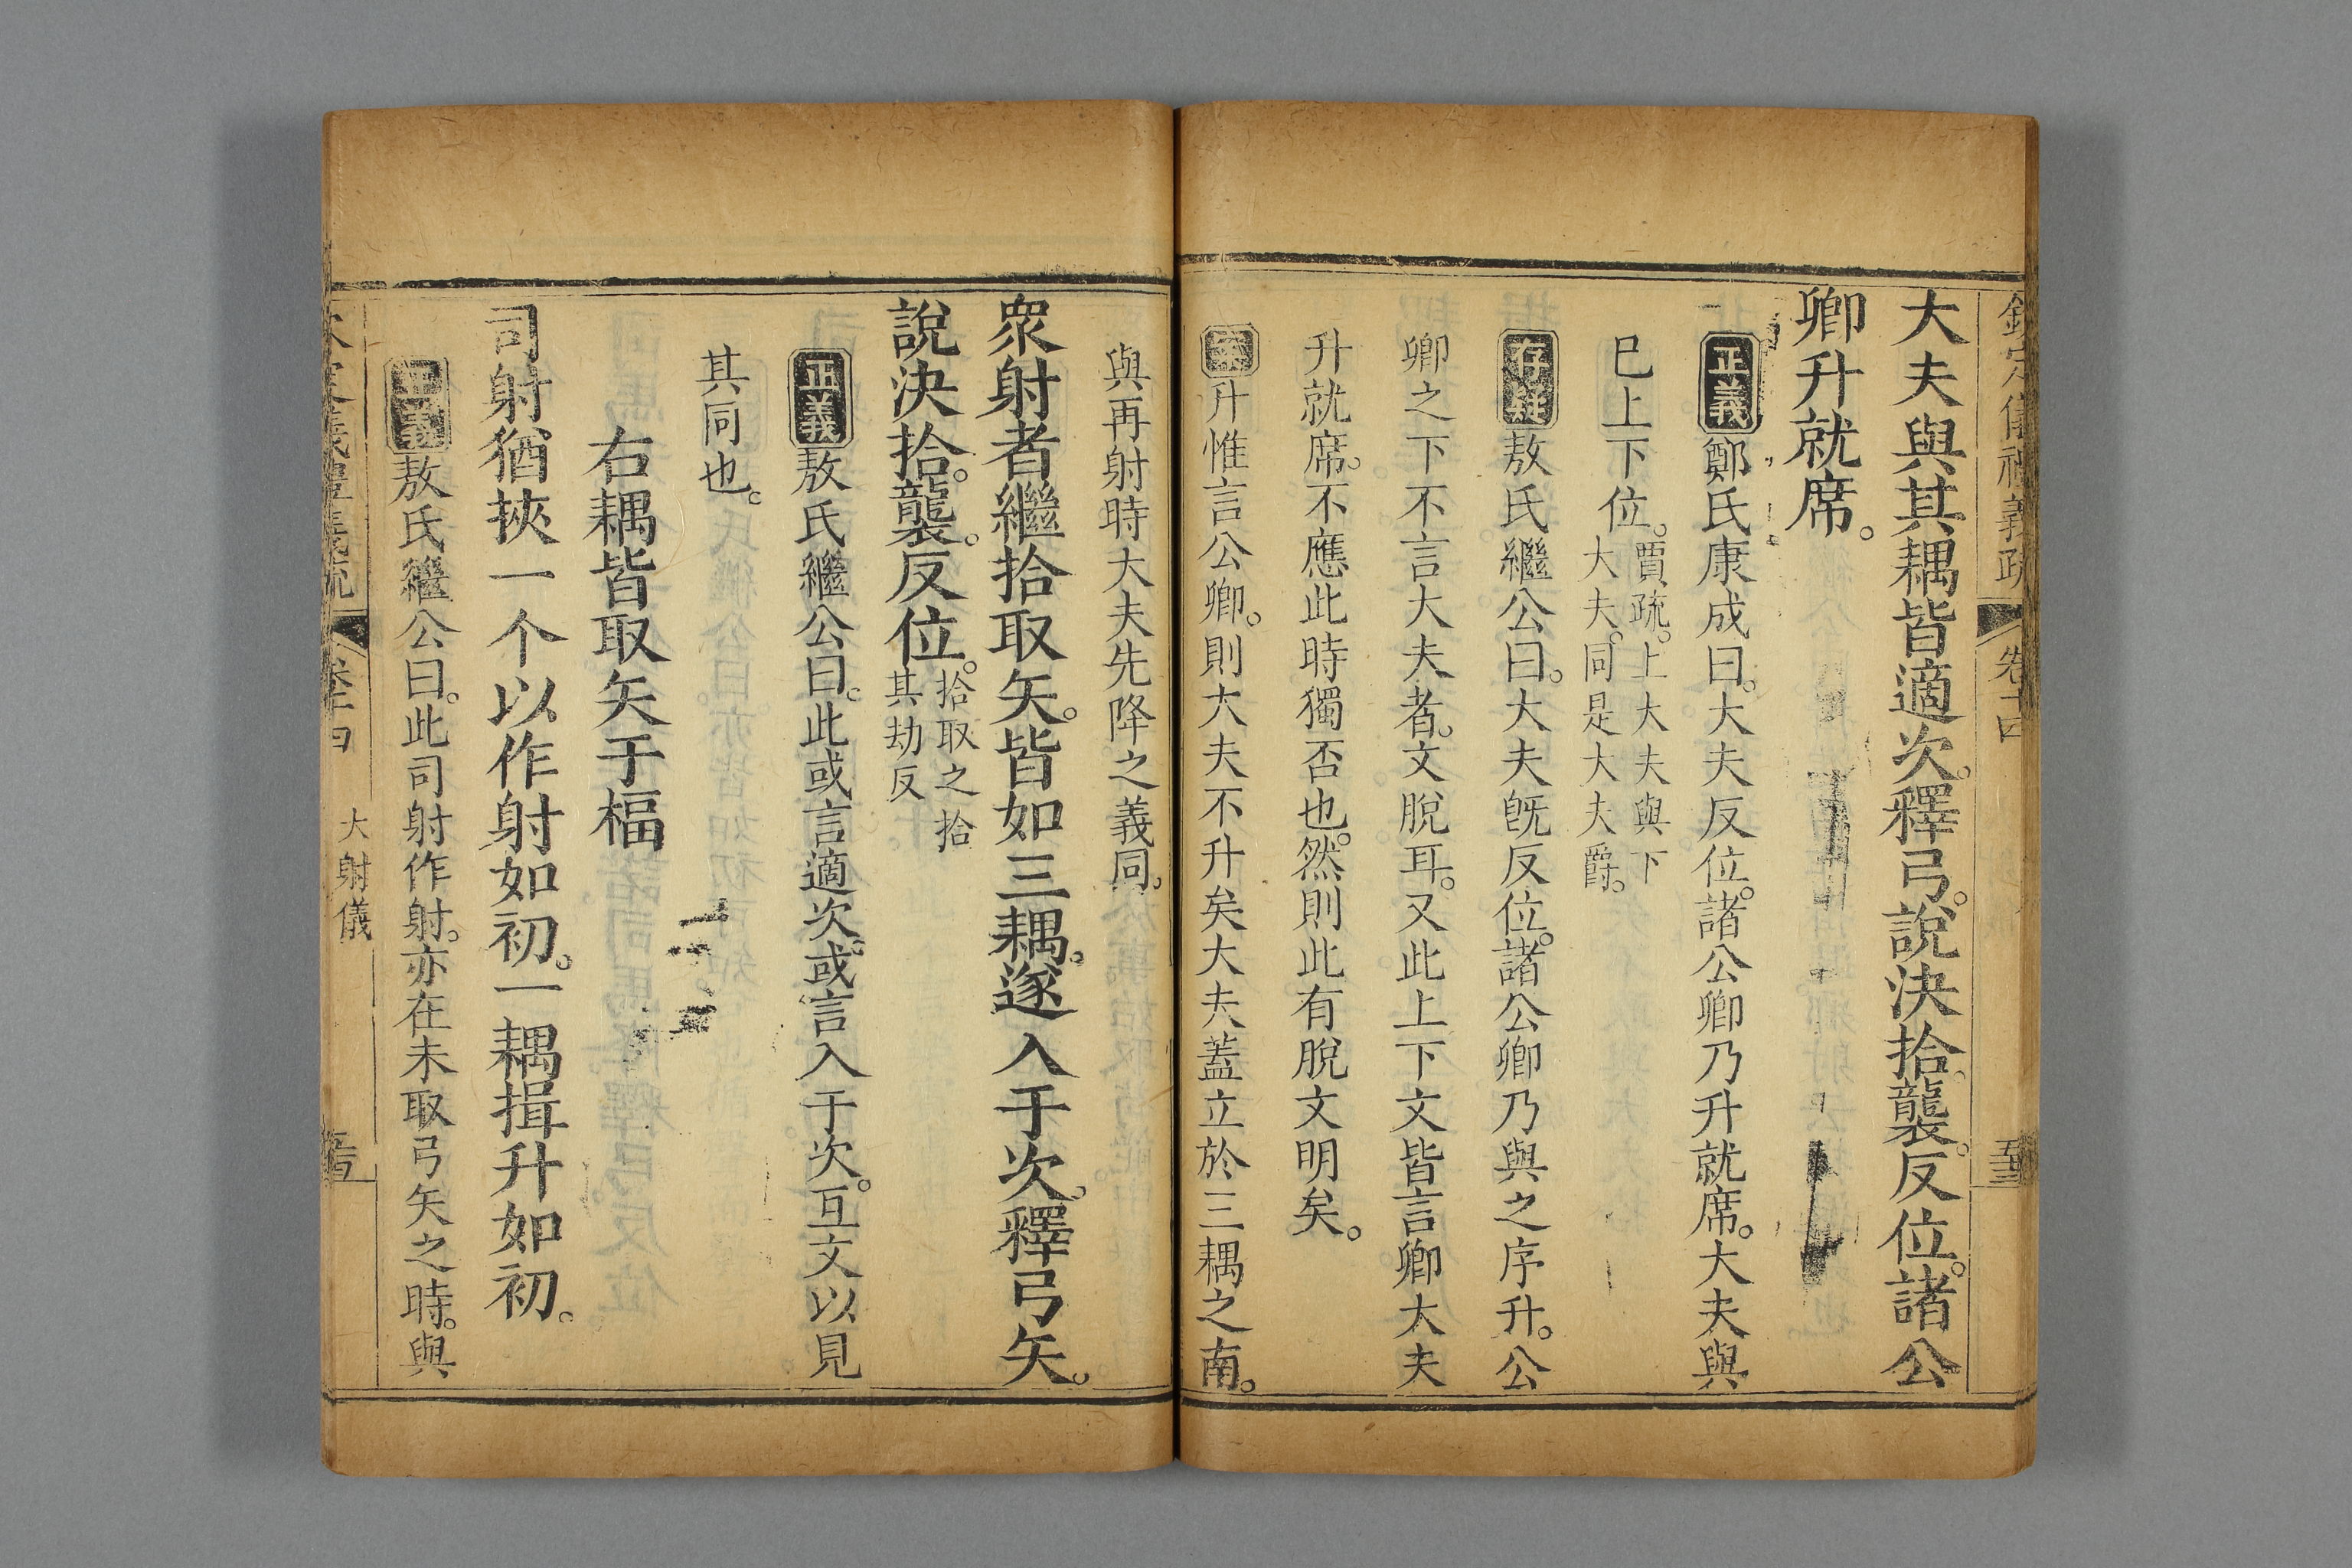 欽定儀禮義疏 卷十四
大夫與其耦皆適次。釋弓。說決拾。襲。反位。諸公
卿升就席。
正義鄭氏康成曰。大夫反位。諸公卿乃升就席。大夫與
巳上下位。賈疏。上大夫與下
大夫。同是大夫爵。
存疑敖氏繼公曰。大夫旣反位。諸公卿乃與之序升。公
卿之下不言大夫者。文脫耳。又此上下文皆言卿大夫
升就席。不應此時獨否也。然則此有脫文明矣。
升惟言公卿。則大夫不升矣大夫蓋立於三耦之南。
與再射時大夫先降之義同。
眾射者繼拾取矢。皆如三耦。遂入于次。釋弓矢。
說決拾。襲。反位。拾取之拾
其劫反
正義敖氏繼公曰。此或言適次。或言入于次。互文以見
其同也。
右耦皆取矢于楅
司射猶挾一个以作射如初。一耦揖升如初。
正義敖氏繼公曰。此司射作射。亦在未取弓矢之時。與
義疏 卷十四 大射儀